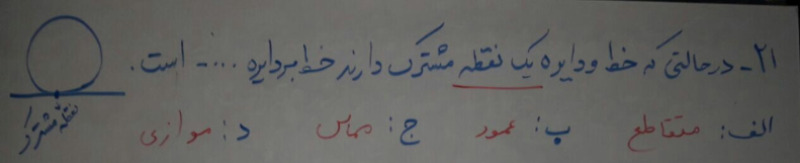 ۲۱- درحالتی که خط و دایره یک نقطه مشترک دارند خط بر دایره ..... است.
الف: متقاطع ب: عمود ج: مماس د: موازی
نقطه مشترک